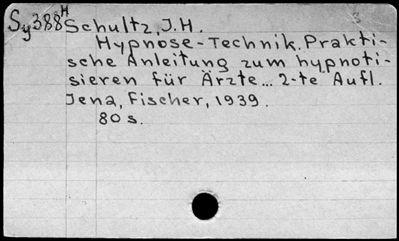 Sy388H Schultz, J.H.
Hypnose-Technik. Prakti-
sche Anleitung zum hypnoti-
sieren für Ärzte... 2-te Aufl.
Jena, Fischer, 1939.
80 s.